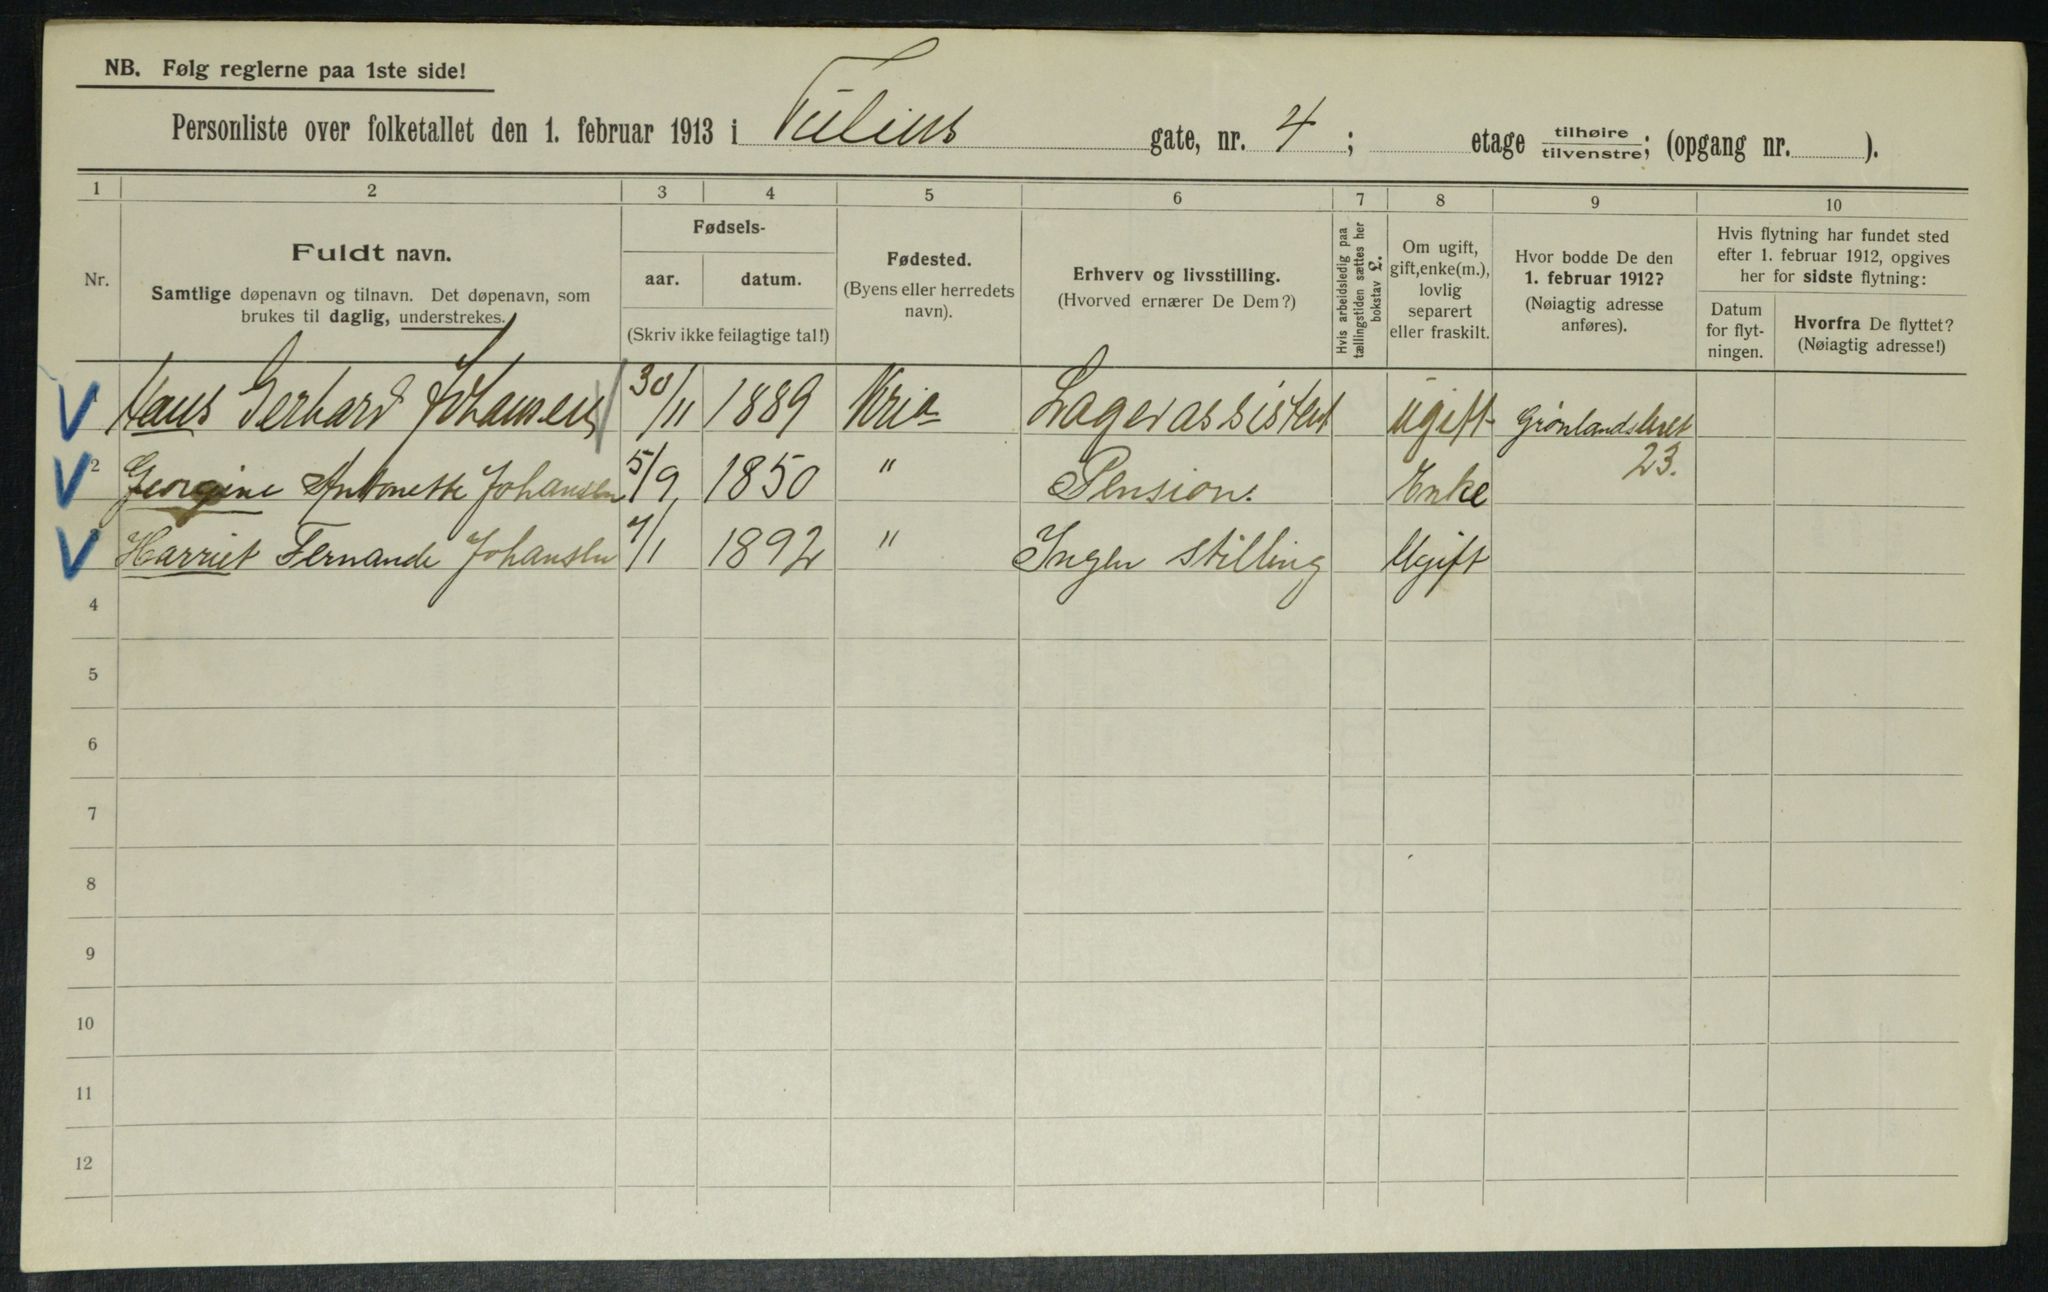 NB. Følg reglerne paa 1ste side!
Personliste over folketallet den 1. februar 1913 i Tullins gate, nr. 4; etage tilhøire tilvenstre; (opgang nr. ).
1 2 3 4 5 6 7 8 9 10
Nr.
Fuldt navn.
Samtlige døpenavn og tilnavn. Det døpenavn, som
brukes til daglig, understrekes.
Fødsels-
aar. datum.
(Skriv ikke feilagtige tal!)
Fødested.
(Byens eller herredets
navn).
Erhverv og livsstilling.
(Hvorved ernærer De Dem?)
Hvis arbeidsledig paa
tællingstiden sættes her
bokstav L.
Om ugift,
gift, enke(m.),
lovlig
separert
eller fraskilt.
Hvor bodde De den
1. februar 1912?
(Nøiagtig adresse
anføres).
Hvis flytning har fundet sted
efter 1. februar 1912, opgives
her for sidste flytning:
Datum
for flyt-
ningen.
Hvorfra De flyttet?
(Nøiagtig adresse!)
Hans Gerhard Johansen 30/11 1889 Kria Lagerassistent ugift Grønlandsleret
23.
2 Georgine Antonette Johansen 5/9 1850 " Pension. Enke
3 Harriet Fernande Johansen 7/1 1892 " Ingen stilling Ugift
4
5
6
7
8
9
10
11
12